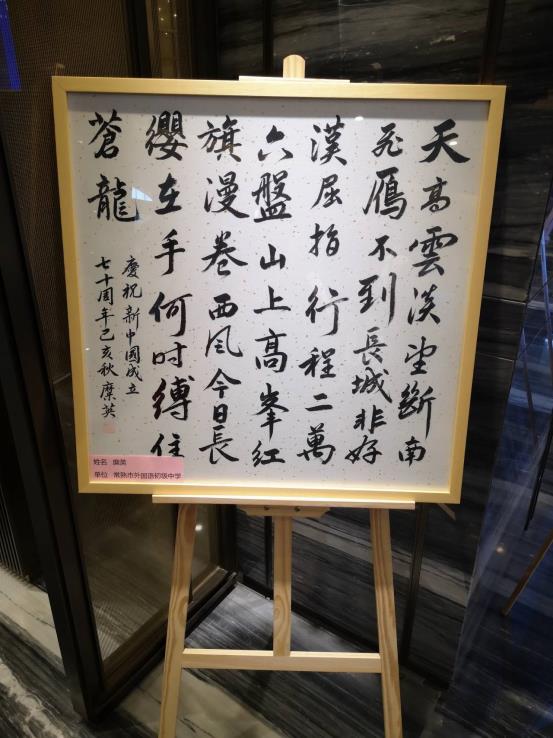 天高雲淡望斷南
飛鴈不到長城非好
漢屈指行程二萬
六盤山上高峯紅
旗漫卷西風今日長
纓在手何时縛住
蒼龍
慶祝新中國成立
七十周年己亥秋糜英
姓名 糜英
单位 常熟市外国语初级中学